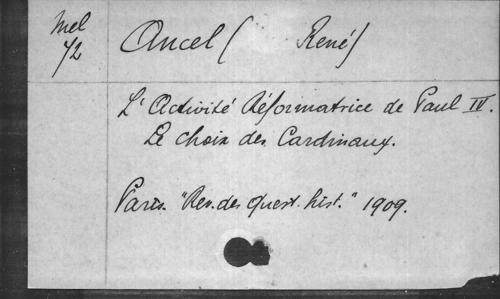 Mel
72
Ancel ( René)
L'Activité Réformatrice de Paul IV.
Le choix des Cardinaux.
Paris. "Rev. des quest. hist." 1909.